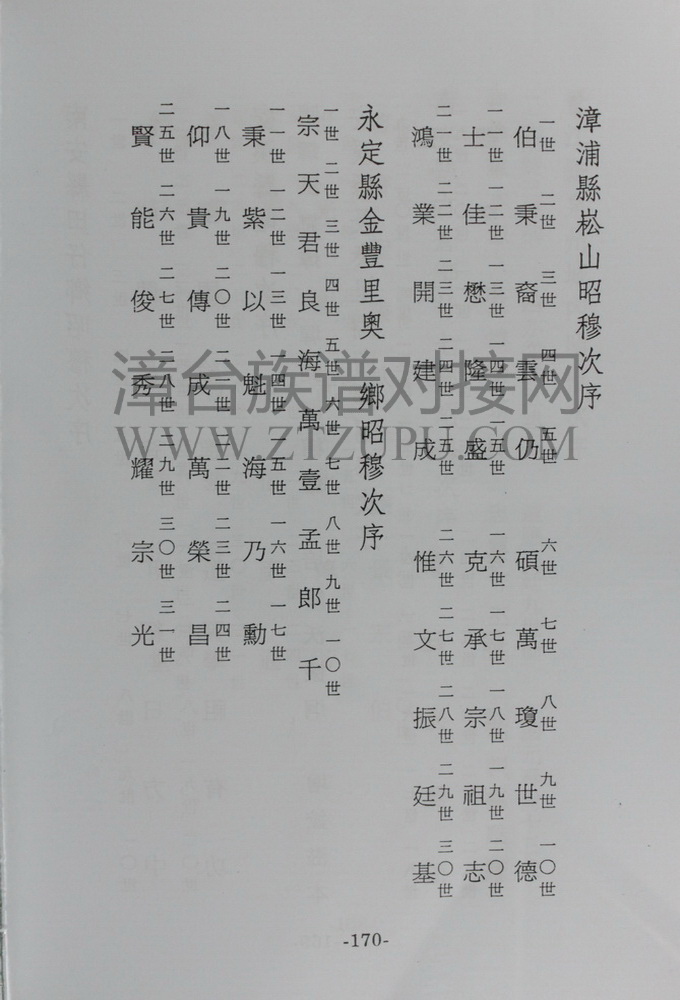 漳浦縣崧山昭穆次序
一世 二世 三世 四世 五世 六世 七世 八世 九世 一〇世
伯秉裔雲仍 碩萬瓊世德
一一世 一二世 一三世 一四世 一五世 一六世 一七世 一八世 一九世 二〇世
士佳懋隆盛 克承宗祖志
二一世 二二世 二三世 二四世 二五世 二六世 二七世 二八世 二九世 三〇世
鴻業開建成 惟文振廷基
永定縣金豐里奧 鄉昭穆次序
一世 二世 三世 四世 五世 六世 七世 八世 九世 一〇世
宗天君良海萬壹孟郎千
一一世 一二世 一三世 一四世 一五世 一六世 一七世
秉紫以魁海乃勳
一八世 一九世 二〇世 二一世 二二世 二三世 二四世
仰貴傳成萬榮昌
二五世 二六世 二七世 二八世 二九世 三〇世 三一世
賢能俊秀耀宗光
漳台族谱对接网
WWW.ZTZUPU.COM
-170-